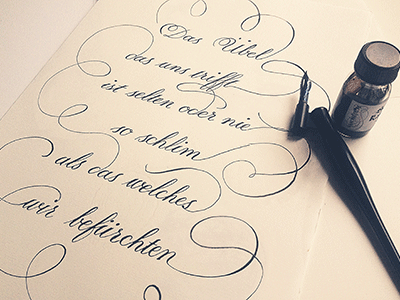 Das Übel
das uns trifft
ist selten oder nie
so schlim
als das welches
wir befürchten